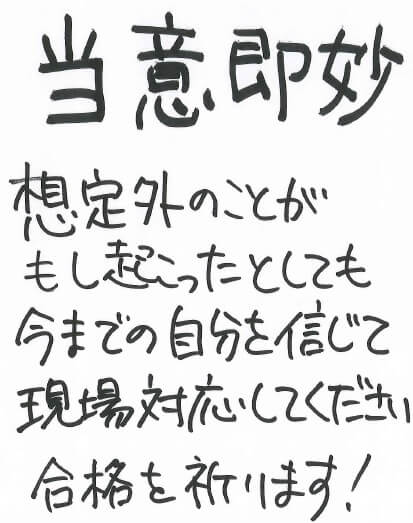 当意即妙
想定外のことが
もし起こったとしても
今までの自分を信じて
現場対応してください
合格を祈ります!